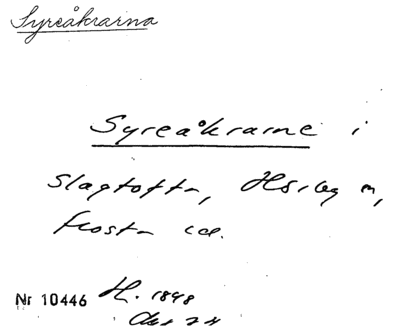 Syreåkrarna
Syreåkrarne i
Slagtofta, Hörby sn,
Frosta
Nr 10446 H. 1898